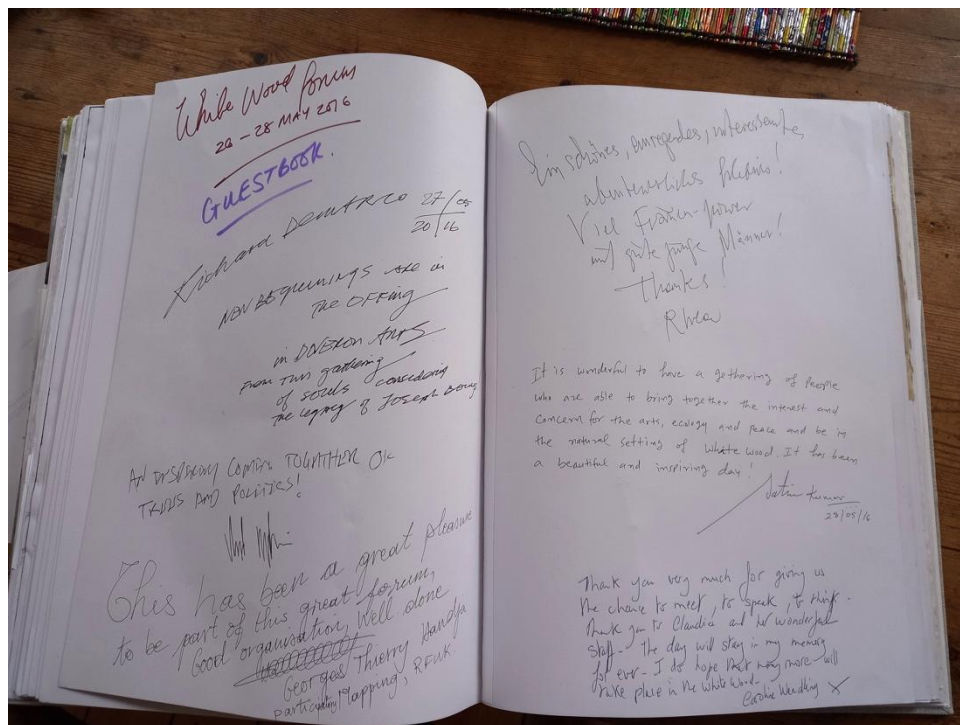 White Wood Forum
26 - 28 MAY 2016
GUESTBOOK.
Richard DEMARCO 27/05
20/16
NEW BEGINNINGS ARE in
The OFFING
in DAVERON ARTS
From This gathering
of souls considering
the legacy of Joseph Beuys
AN INSPIRING COMING TOGETHER OF
TREES AND POLITICS!
This has been a great pleasure
to be part of this great forum,
Good organisation, Well done
Georges Thierry Handja
participatory Mapping, RFUK.
Ein schönes, anregendes, interessantes,
abenteuerliches Erlebnis!
Viel Frauen-power
und gute junge Männer!
Thanks!
Rhea
It is wonderful to have a gethering of people
who are able to bring together the interest and
concern for the arts, ecology and peace and be in
the natural setting of White wood. It has been
a beautiful and inspiring day!
Satish Kumar
28/05/16
Thank you very much for giving us
the chance to meet, to speak, to think.
Thank you to Claudia and her wonderful
staff. The day will stay in my memory
for ever. I do hope that many more will
take place in the White Wood.
Caroline Wendling X